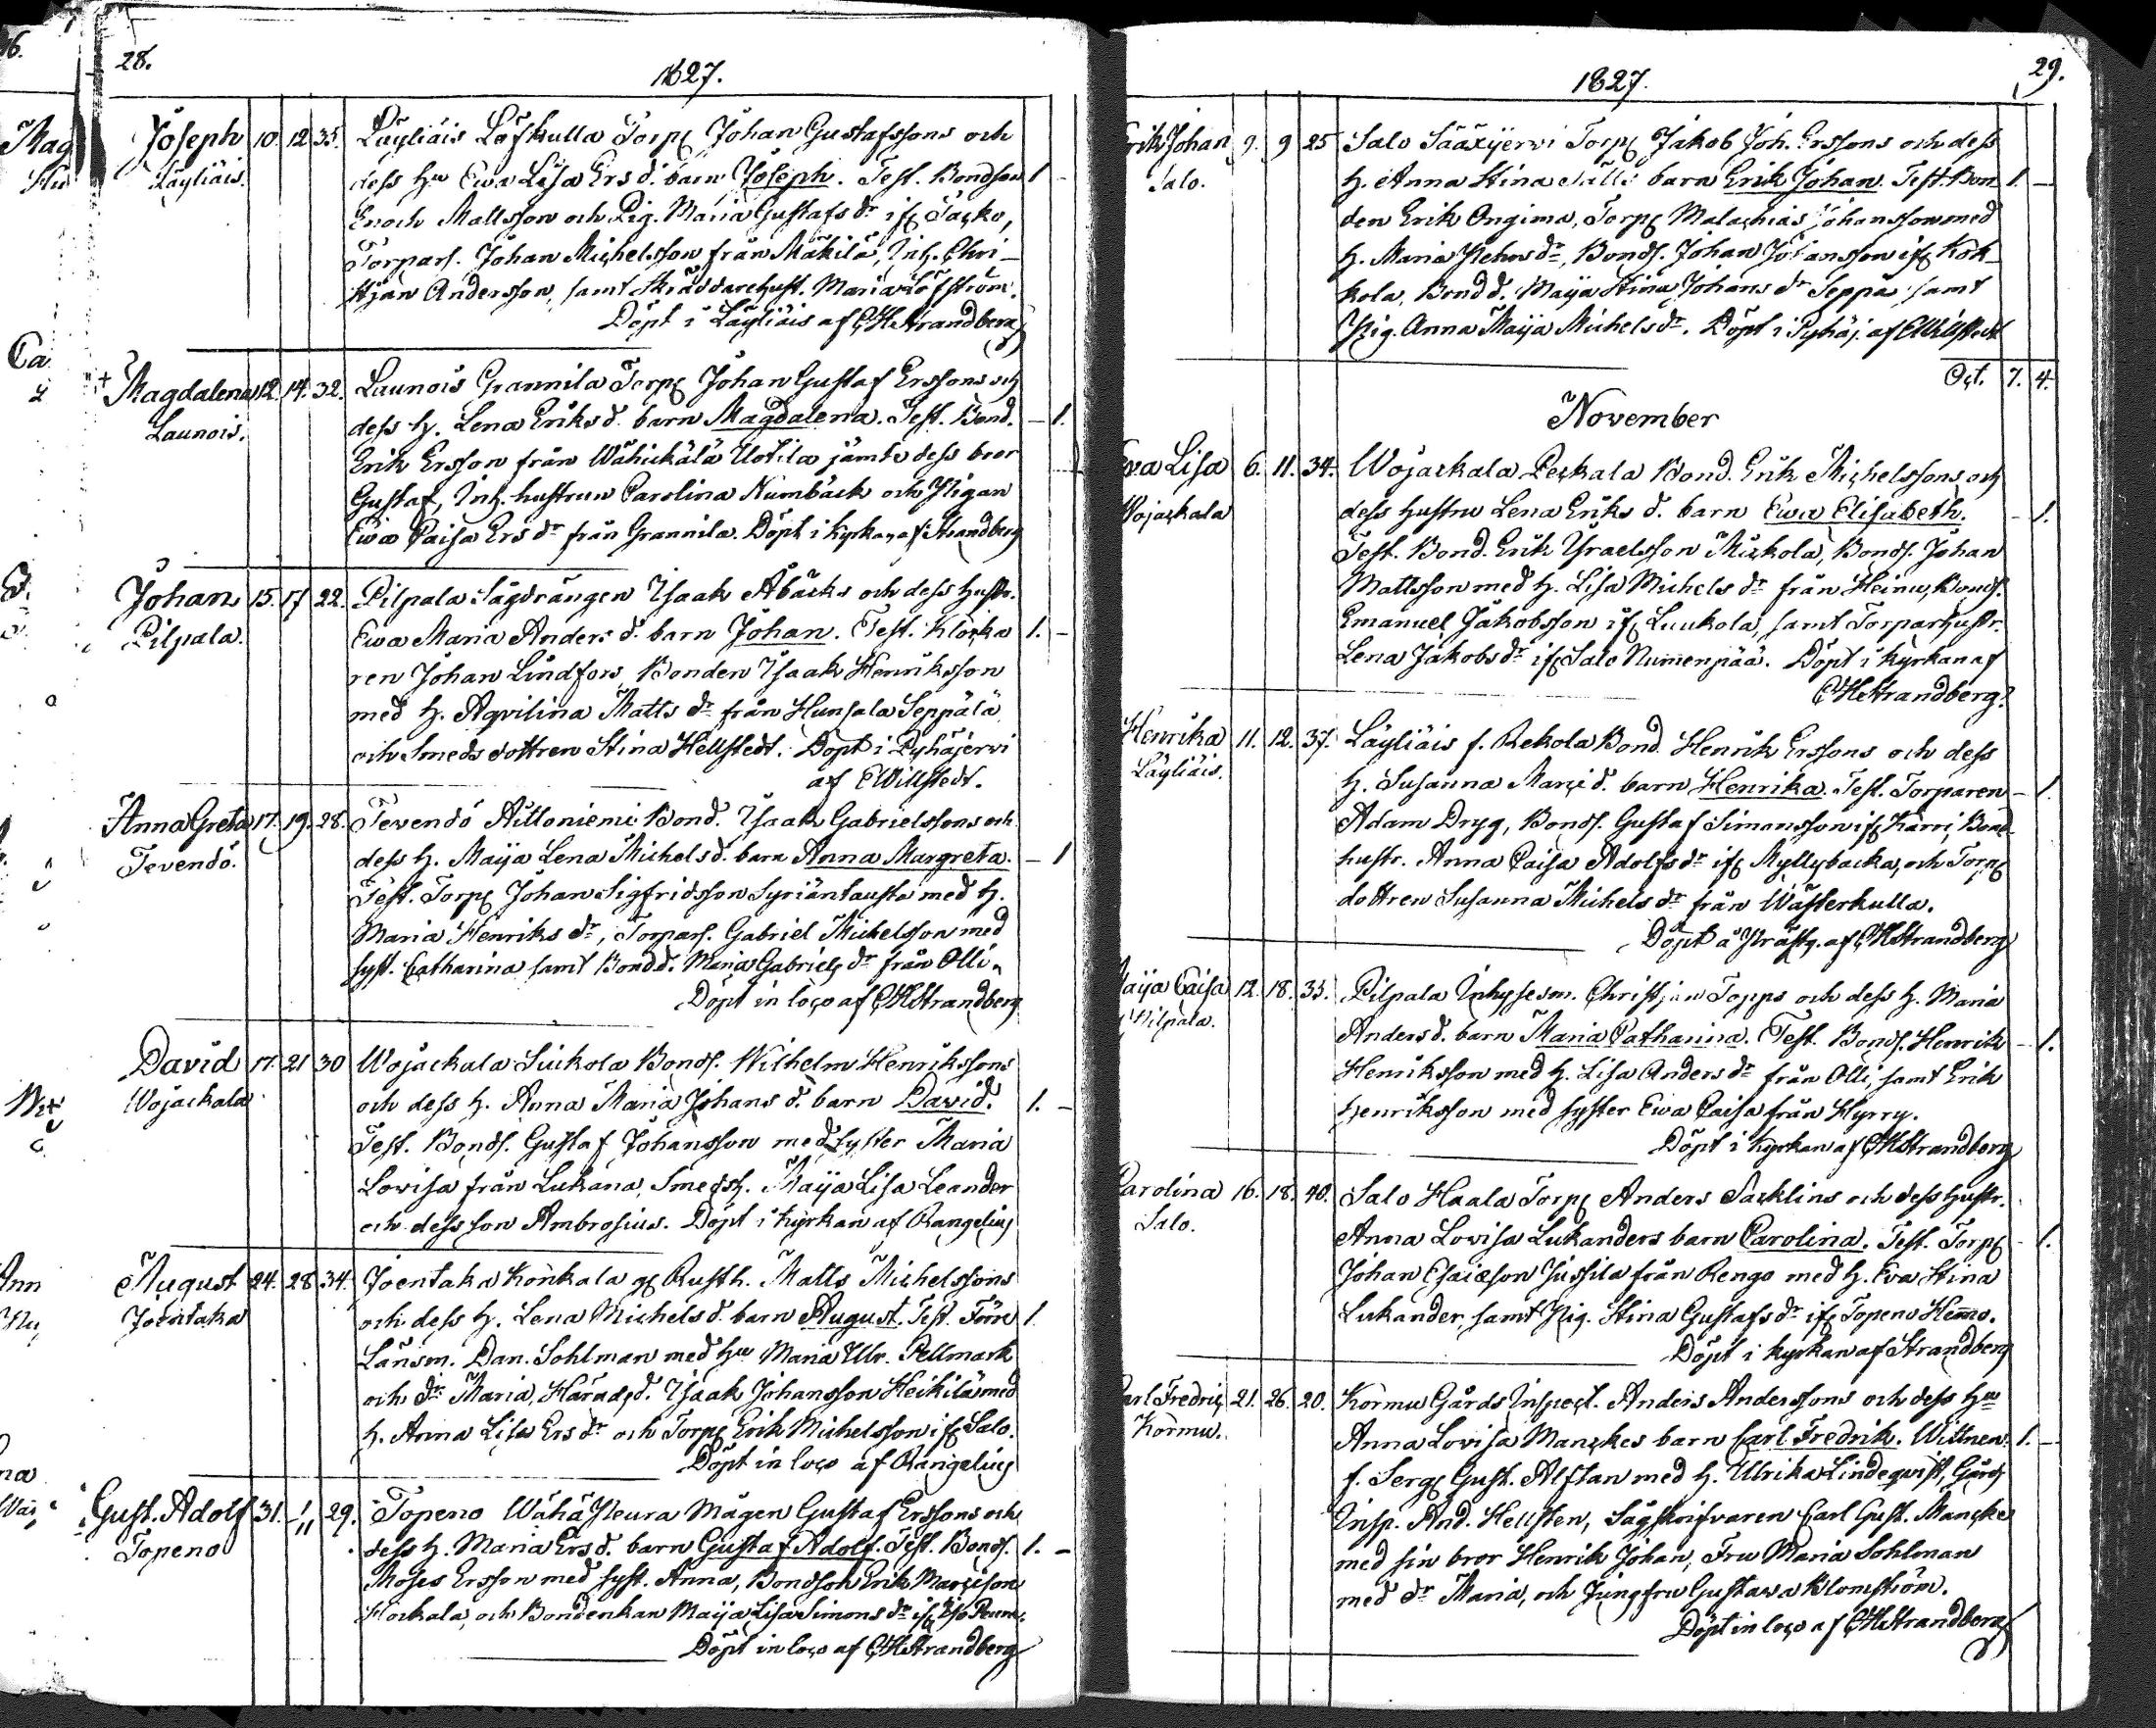 28.
1827.
Joseph 10. 12 35. Läyliäis Löfkulla Torp. Johan Gustafssons och
Läyliäis. dess Hu Ewa Lisa Ersd. barn Joseph. Test. Bondson 1 -
Enoch Mattsson och Pig. Maria Gustafsdr ifr Sacko,
Torpars. Johan Michelsson från Mäkilä, Inh. Chri-
stjan Andersson, samt Skräddarehust. Maria Löfström.
Döpt i Läyliäis af CHStrandberg
+ Magdalena 12. 14. 32. Launois Grannila Torp. Johan Gustaf Erssons och
Launois. dess h. Lena Eriks d. barn Magdalena. Test. Bond. - 1.
Erik Ersson från Wähickälä Uotila jämte dess bror
Gustaf, Inh. hustrun Carolina Numbäck och Pigan
Ewa Caisa Ersdr från Grannila. Döpt i Kyrkan af Strandberg
Johan 15. 17 22. Pilpala Sågdrängen Isaak Åbäcks och dess hustr.
Pilpala. Ewa Maria Anders d. barn Johan. Test. Klocka 1. -
ren Johan Lindfors, Bonden Isaak Henriksson
med h. Aqvilina Matts dr från Hunsala Seppälä
och Smeds dottren Stina Hellstedt. Döpt i Pyhäjerwi
af EWillstedt.
Anna Greta 17. 19. 28. Tevendö Aittoniemi Bond. Isaak Gabrielssons och
Tevendö. dess h. Maija Lena Michelsd. barn Anna Margreta. - 1
Test. Torp. Johan Sigfridsson Syriäntausta med h.
Maria Henriks dr, Torpars. Gabriel Michelsson med
syst. Catharina samt Bondd. Maria Gabriels dr från Olli.
Döpt in loco af CHStrandberg
David 17. 21 30 Wojackala Suikola Bonds. Wilhelm Henrikssons
Wojackala och dess h. Anna Maria Johans d. barn David. 1. -
Test. Bonds. Gustaf Johansson med syster Maria
Lovisa från Lukana, Smedsh. Maija Lisa Leander
och dess son Ambrosius. Döpt i kyrkan af Rangelius
August 24. 28 34. Joentaka Konkala Rusth. Matts Michelssons
Joentaka och dess h. Lena Michels d. barn August. Test. Förre 1
Länsm. Dan. Sohlman med hu Maria Ulr. Pellmark
och dr Maria, Häradsd. Isaak Johansson Heikilä med
h. Anna Lisa Ersdr och Torp. Erik Michelsson ifr Salo.
Döpt in loco af Rangelius
Gust. Adolf 31. 1/11 29. Topeno Wähä Peura Mågen Gustaf Erssons och
Topeno dess h. Maria Ersd. barn Gustaf Adolf. Test. Bonds. 1. -
Moses Ersson med syst. Anna, Bondson Erik Marcison
Hockala, och Bondenkan Maija Lisa Simons dr ifr Iso Peura.
Döpt in loco af CHStrandberg
29.
1827.
Erik Johan 9. 9 25 Salo Sääxjerwi Torp. Jakob Joh. Erssons och dess
Salo. h. Anna Stina barn Erik Johan. Test. Bon 1. -
den Erik Ongima, Torp. Malachias Johansson med
h. Maria dr, Bonds. Johan Johansson ifr Kok-
kola, Bondd. Maija Stina Johans dr Seppä samt
Pig. Anna Maija Michelsdr. Döpt i Pyhäj. af EWillstedt
Oct. 7. 4.
November
Eva Lisa 6. 11. 34. Wojackala Peckala Bond. Erik Michelssons och
Wojackala dess hustru Lena Eriks d. barn Ewa Elisabeth. - 1.
Test. Bond. Erik Israelsson Mickola, Bonds. Johan
Mattsson med h. Lisa Michels dr från Heinu, Bonds.
Emanuel Jakobsson ifr Luukola, samt Torparhustr.
Lena Jakobs dr ifr Salo Numenpää. Döpt i Kyrkan af
CHStrandberg.
Henrika 11. 12. 37. Läyliäis f. Rekola Bond. Henrik Erssons och dess
Läyliäis. h. Susanna Marcid. barn Henrika. Test. Torparen - 1.
Adam Dryg, Bonds. Gustaf Simonsson ifr Karri, Bond
hustr. Anna Caisa Adolfsdr ifr Myllybacka, och Torp.
dottren Susanna Michels dr från Wästerkulla.
Döpt å Prästg. af CHStrandberg
Maija Caisa 12. 18. 35. Pilpala Inhysesm. Christjan Topps och dess h. Maria
Pilpala. Anders d. barn Maria Catharina. Test. Bonds. Henrik - 1.
Henriksson med h. Lisa Anders dr från Olli, samt Erik
Henriksson med syster Ewa Caisa från Hyrry.
Döpt i kyrkan af CHStrandberg
Carolina 16. 18. 40. Salo Haala Torp. Anders Sacklins och dess hustr.
Salo. Anna Lovisa Lukanders barn Carolina. Test. Torp. - 1.
Johan Esaiæson Jussila från Rengo med h. Eva Stina
Lukander, samt Pig. Stina Gustafs dr ifr Topeno Hemmo.
Döpt i kyrkan af Strandberg
Carl Fredric 21. 26. 20. Kormu Gårds Inspect. Anders Anderssons och dess hu
Kormu. Anna Lovisa Manckes barn Carl Fredrik. Wittnen. 1. -
f. Serg. Gust. Alftan med h. Ulrika Lindeqvist, Gårds
Insp. And. Hellsten, Sågskrifvaren Carl Gust. Mancke
med sin bror Henrik Johan, Fru Maria Sohlman
med dr Maria, och Jungfru Gustava Blomström.
Döpt in loco af CHStrandberg